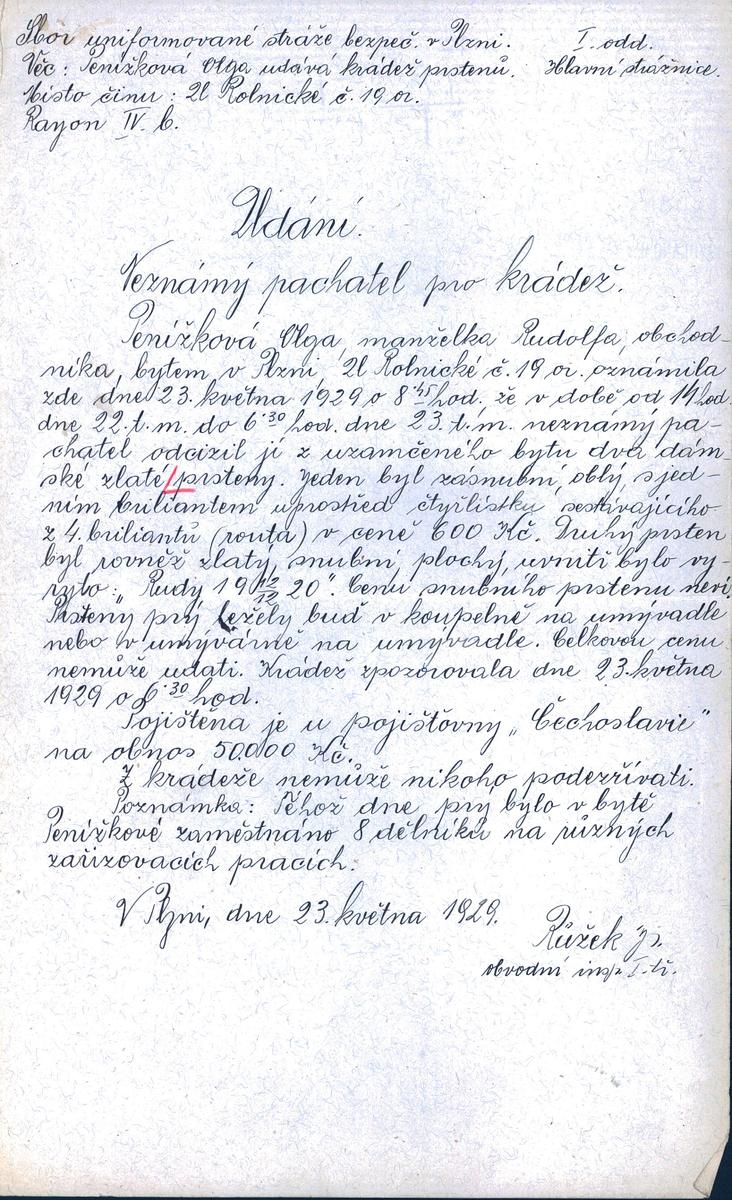 Sbor uniformované stráže bezpeč. v Plzni. I. odd.
Věc: Penížková Olga udává krádež prstenů. Hlavní strážnice.
Místo činu: Ul Rolnické č. 19 or.
Rayon IV. b.
Udání.
Neznámý pachatel pro krádež.
Penížková Olga, manželka Rudolfa, obchod-
níka, bytem v Plzni, Ul Rolnické č. 19 or. oznámila
zde dne 23. května 1929 o 8·45 hod. že v době od 14 hod.
dne 22. t. m. do 6·30 hod. dne 23. t. m. neznámý pa-
chatel odcizil jí z uzamčeného bytu dva dám-
ské zlaté prsteny. Jeden byl zásnubní, oblý, s jed-
ním briliantem uprostřed čtyřlístku sestávajícího
z 4. briliantů (routa) v ceně 600 Kč. Druhý prsten
byl rovněž zlatý, snubní, plochý, uvnitř bylo vy-
ryto: „Rudy 19 12/12 20". Cenu snubního prstenu neví.
Prsteny prý ležely buď v koupelně na umývadle
nebo v umývárně na umyvadle. Celkovou cenu
nemůže udati. Krádež zpozorovala dne 23. května
1929 o 6·30 hod.
Pojištěna je u pojišťovny „Čechoslavie"
na obnos 50.000 Kč.
Z krádeže nemůže nikoho podezřívati.
Poznámka: Téhož dne prý bylo v bytě
Penížkové zaměstnáno 8 dělníků na různých
zařizovacích pracích.
V Plzni, dne 23. května 1929.
Růžek
obvodní insp. I. tř.